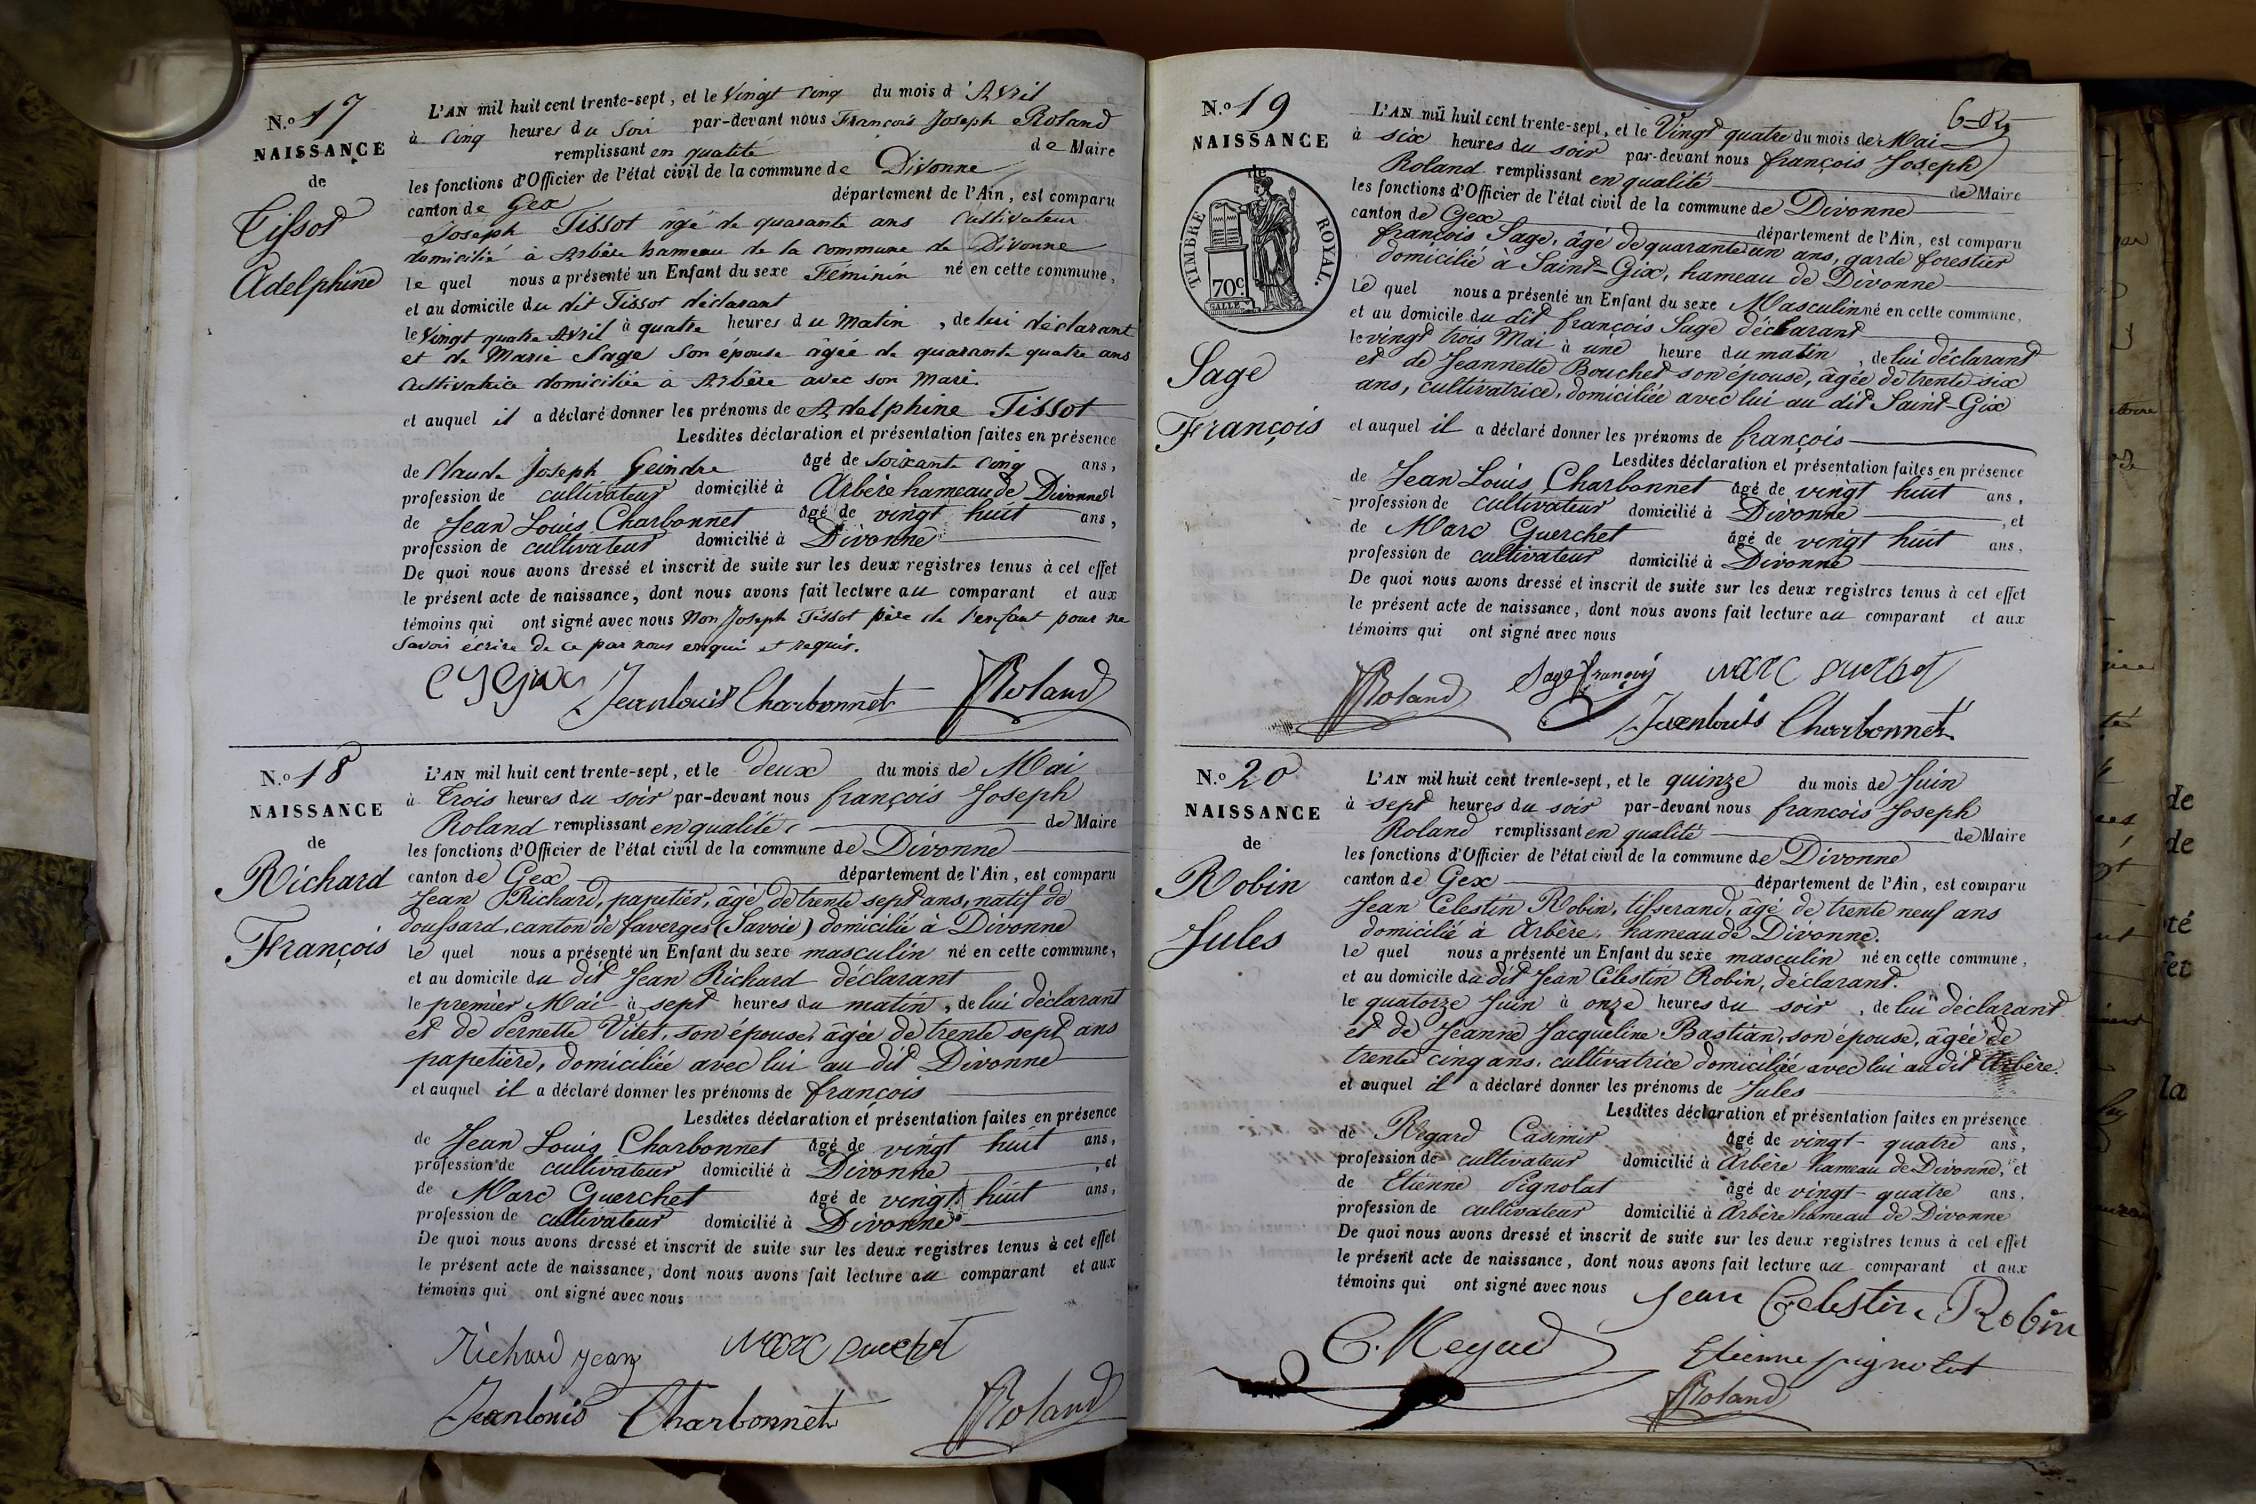 N.o 17
NAISSANCE
de
Tissot
Adelphine
L'AN mil huit cent trente-sept, et le Vingt cinq du mois d'Avril
à cinq heures du Soir par-devant nous François Joseph Roland
remplissant en qualité de Maire
les fonctions d'Officier de l'état civil de la commune de Divonne
canton de Gex département de l'Ain, est comparu
Joseph Tissot âgé de quarante ans Cultivateur
domicilié à Arbère hameau de la commune de Divonne
le quel nous a présenté un Enfant du sexe Féminin né en cette commune,
et au domicile du dit Tissot déclarant
le Vingt quatre Avril à quatre heures du Matin, de lui déclarant
et de Marie Sage Son épouse âgée de quarante quatre ans
Cultivatrice domiciliée à Arbère avec son Mari.
et auquel il a déclaré donner les prénoms de Adelphine Tissot
Lesdites déclaration et présentation faites en présence
de Claude Joseph Geindre âgé de Soixante cinq ans,
profession de cultivateur domicilié à Arbère hameau de Divonne et
de Jean Louis Charbonnet âgé de vingt huit ans,
profession de cultivateur domicilié à Divonne
De quoi nous avons dressé et inscrit de suite sur les deux registres tenus à cet effet
le présent acte de naissance, dont nous avons fait lecture au comparant et aux
témoins qui ont signé avec nous Non Joseph Tissot père de l'enfant pour ne
Savoir écrire de ce par nous enquis et requis.
Jeanlouis Charbonnet Roland
N.o 18
NAISSANCE
de
Richard
François
L'AN mil huit cent trente-sept, et le deux du mois de Mai
à Trois heures du soir par-devant nous françois Joseph
Roland remplissant en qualité de Maire
les fonctions d'Officier de l'état civil de la commune de Divonne
canton de Gex département de l'Ain, est comparu
Jean Richard, papetier, âgé de trente sept ans, natif de
doussard, canton de faverges (Savoie) domicilié à Divonne
le quel nous a présenté un Enfant du sexe masculin né en cette commune,
et au domicile du dit Jean Richard déclarant
le premier Mai à sept heures du matin, de lui déclarant
et de Pernette Vitet, son épouse, âgée de trente sept ans
papetière, domiciliée avec lui au dit Divonne
et auquel il a déclaré donner les prénoms de françois
Lesdites déclaration et présentation faites en présence
de Jean Louis Charbonnet âgé de vingt huit ans,
profession de cultivateur domicilié à Divonne, et
de Marc Guerchet âgé de vingt huit ans,
profession de cultivateur domicilié à Divonne
De quoi nous avons dressé et inscrit de suite sur les deux registres tenus à cet effet
le présent acte de naissance, dont nous avons fait lecture au comparant et aux
témoins qui ont signé avec nous
Richard jean marc guerchet
Jeanlouis Charbonnet Roland
N.o 19
NAISSANCE
de
TIMBRE ROYAL.
70c.
Sage
François
L'AN mil huit cent trente-sept, et le Vingt quatre du mois de Mai
à six heures du soir par-devant nous françois Joseph
Roland remplissant en qualité de Maire
les fonctions d'Officier de l'état civil de la commune de Divonne
canton de Gex département de l'Ain, est comparu
françois Sage, âgé de quarante un ans, garde forestier
domicilié à Saint-Gix, hameau de Divonne
le quel nous a présenté un Enfant du sexe Masculin né en cette commune,
et au domicile du dit françois Sage déclarant
le vingt trois Mai à une heure du matin, de lui déclarant
et de Jeannette Bouchet son épouse, âgée de trente six
ans, cultivatrice, domiciliée avec lui au dit Saint-Gix
et auquel il a déclaré donner les prénoms de françois
Lesdites déclaration et présentation faites en présence
de Jean Louis Charbonnet âgé de vingt huit ans,
profession de cultivateur domicilié à Divonne, et
de Marc Guerchet âgé de vingt huit ans,
profession de cultivateur domicilié à Divonne
De quoi nous avons dressé et inscrit de suite sur les deux registres tenus à cet effet
le présent acte de naissance, dont nous avons fait lecture au comparant et aux
témoins qui ont signé avec nous
Roland Sage françois marc guerchet
Jeanlouis Charbonnet
N.o 20
NAISSANCE
de
Robin
Jules
L'AN mil huit cent trente-sept, et le quinze du mois de Juin
à sept heures du soir par-devant nous françois Joseph
Roland remplissant en qualité de Maire
les fonctions d'Officier de l'état civil de la commune de Divonne
canton de Gex département de l'Ain, est comparu
Jean Célestin Robin, tisserand, âgé de trente neuf ans
domicilié à Arbère, hameau de Divonne.
le quel nous a présenté un Enfant du sexe masculin né en cette commune,
et au domicile du dit Jean Célestin Robin, déclarant.
le quatorze Juin à onze heures du soir, de lui déclarant
et de Jeanne Jacqueline Bastian, son épouse, âgée de
trente cinq ans, cultivatrice domiciliée avec lui au dit Arbère.
et auquel il a déclaré donner les prénoms de Jules
Lesdites déclaration et présentation faites en présence
de Régard Casimir âgé de vingt-quatre ans,
profession de cultivateur domicilié à Arbère hameau de Divonne, et
de Etienne Pignolat âgé de vingt-quatre ans,
profession de cultivateur domicilié à Arbère hameau de Divonne
De quoi nous avons dressé et inscrit de suite sur les deux registres tenus à cet effet
le présent acte de naissance, dont nous avons fait lecture au comparant et aux
témoins qui ont signé avec nous Jean Celestin Robin
Etienne pignolat
Roland